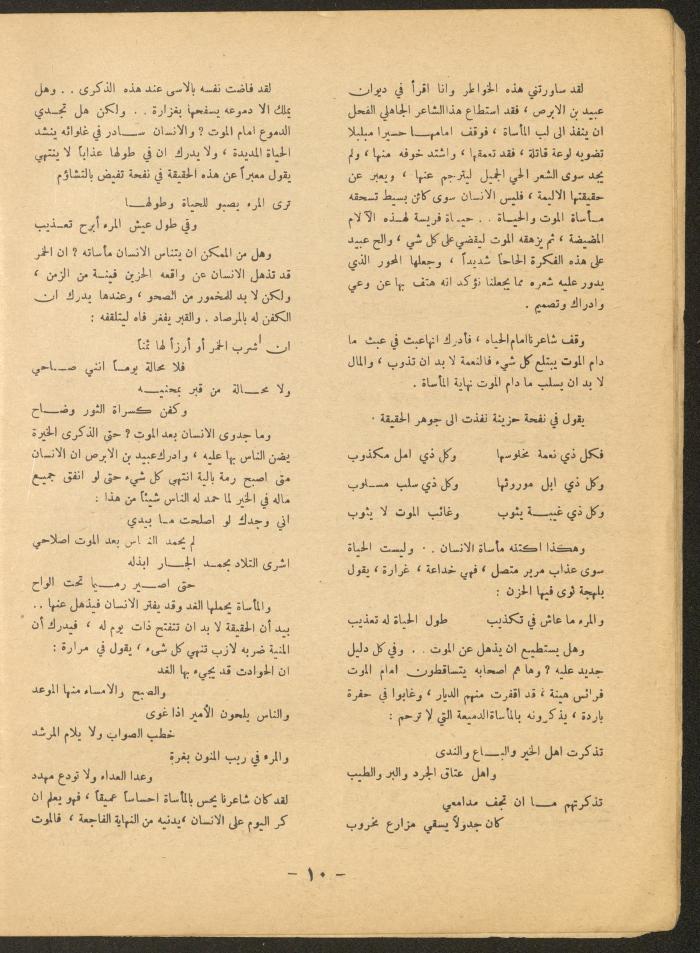 لقد ساورتني هذه الخواطر وانا اقرأ في ديوان
عبيد بن الابرص ، فقد استطاع هذا الشاعر الجاهلي الفحل
ان ينفذ الى لب المأساة ، فوقف امامها حسيرا مبلبلا
تضويه لوعة قاتلة ، فقد تعمقها ، واشتد خوفه منها ، ولم
يجد سوى الشعر الحي الجميل ليترجم عنها ، ويعبر عن
حقيقتها الاليمة ، فليس الانسان سوى كائن بسيط تسحقه
مأساة الموت والحياة . . حياة فريسة لهذه الآلام
المضيضة ، ثم يزهقه الموت ليقضي على كل شي ، والح عبيد
على هذه الفكرة الحاحاً شديداً ، وجعلها المحور الذي
يدور عليه شعره مما يجعلنا نؤكد انه هتف بها عن وعي
وادراك وتصميم .
وقف شاعرنا امام الحياه ، فأدرك انها عبث في عبث ما
دام الموت يبتلع كل شيء فالنعمة لا بد ان تذوب ، والمال
لا بد ان يسلب ما دام الموت نهاية المأساة .
يقول في نفحة حزينة نفذت الى جوهر الحقيقة .
فكل ذي نعمة مخلوسها وكل ذي امل مكذوب
وكل ذي ابل موروثها وكل ذي سلب مسلوب
وكل ذي غيبة يثوب وغائب الموت لا يثوب
وهكذا اكتنه مأساة الانسان . . وليست الحياة
سوى عذاب مرير متصل ، فهي خداعة ، غرارة ، يقول
بلهجة ثوى فيها الحزن :
والمرء ما عاش في تكذيب طول الحياة له تعذيب
وهل يستطيع ان يذهل عن الموت . . وفي كل دليل
جديد عليه ? وها هم اصحابه يتساقطون امام الموت
فرائس هينة ، قد اقفرت منهم الديار ، وغابوا في حفرة
باردة ، يذكرونه بالمأساة الدميعة التي لا ترحم :
تذكرت اهل الخير والباع والندى
واهل عتاق الجرد والبر والطيب
تذكرتهم ما ان تجف مدامعي
كان جدولاً يسقي مزارع مخروب
لقد فاضت نفسه بالاسى عند هذه الذكرى . . وهل
يملك الا دموعه يسفحها بغزارة . . ولكن هل تجدي
الدموع امام الموت ? والانسان سادر في غلوائه ينشد
الحياة المديدة ، ولا يدرك ان في طولها عذاباً لا ينتهي
يقول معبراً عن هذه الحقيقة في نفحة تفيض بالتشاؤم
ترى المرء يصبو للحياة وطولها
وفي طول عيش المرء أبرح تعذيب
وهل من الممكن ان يتناس الانسان مأساته ? ان الخمر
قد تذهل الانسان عن واقعه الحزين فينة من الزمن ،
ولكن لا بد للمخمور من الصحو ، وعندها يدرك ان
الكفن له بالمرصاد . والقبر يفغر فاه ليتلقفه :
ان أشرب الخمر أو أرزأ لها ثمناً
فلا محالة يوماً انني صاحي
ولا محالة من قبر بمحنية
وكفن كسراة الثور وضاح
وما جدوى الانسان بعد الموت ? حتى الذكرى الخيرة
يضن الناس بها عليه ، وادرك عبيد بن الابرص ان الانسان
متى اصبح رمة بالية انتهى كل شيء حتى لو انفق جميع
ماله في الخير لما حمد له الناس شيئاً من هذا :
اني وجدك لو اصلحت ما بيدي
لم يحمد الناس بعد الموت اصلاحي
اشرى التلاد بحمد الجار ابذله
حتى اصير رميما تحت الواح
والمأساة يحملها الغد وقد يفتر الانسان فيذهل عنها . .
بيد أن الحقيقة لا بد ان تتفتح ذات يوم له ، فيدرك أن
المنية ضربه لازب تنهي كل شىء ، يقول في مرارة :
ان الحوادث قد يجيء بها الغد
والصبح والامساء منها الموعد
والناس يلحون الأمير اذا غوى
خطب الصواب ولا يلام المرشد
والمرء في ريب المنون بغرة
وعدا العداء ولا تودع مهدد
لقد كان شاعرنا يحس بالمأساة احساساً عميقاً ، فهو يعلم ان
كر اليوم على الانسان ، يدنيه من النهاية الفاجعة ، فالموت
- ١٠ -